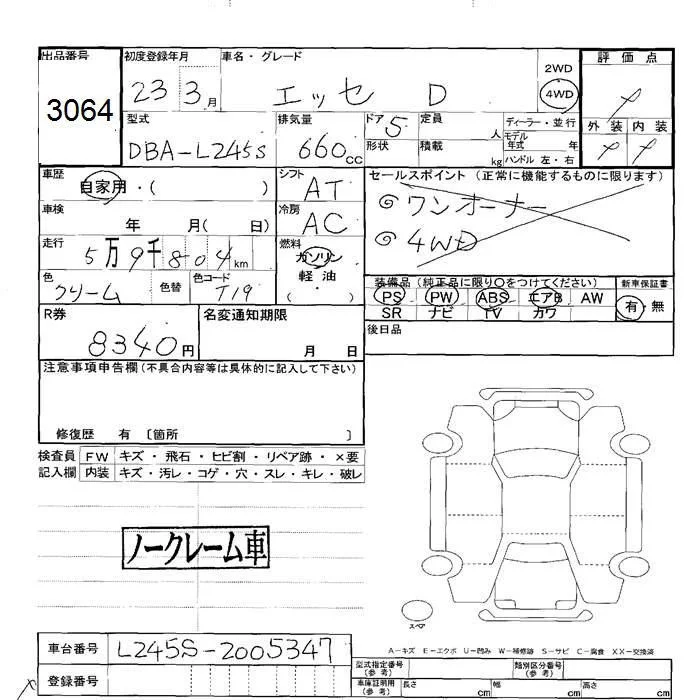 出品番号 初度登録年月 車名・グレード 2WD 評価点
3064 23 3月 エッセ D 4WD
型式 排気量 ドア 5 定員 人 ディーラー・並行 外装 内装
DBA-L245S 660cc 形状 積載 kg モデル年式 年 ハンドル 左・右
車歴 シフト セールスポイント (正常に機能するものに限ります)
自家用・( ) AT ◎ワンオーナー
車検 年 月( 日) 冷房 AC ◎4WD
走行 5万9千804km 燃料 ガソリン
軽油
( )
色 クリーム 色替 色コード T19
装備品 (純正品に限り○をつけてください) 新車保証書
PS PW ABS エアB AW 有・無
SR ナビ TV カワ
R券 8340円 名変通知期限 月 日 後日品
注意事項申告欄(不具合内容等は具体的に記入して下さい)
修復歴 有 〔箇所 〕
検査員 FW キズ・飛石・ヒビ割・リペア跡・×要
記入欄 内装 キズ・汚レ・コゲ・穴・スレ・キレ・破レ
ノークレーム車
スペア
A-キズ E-エクボ U-凹み W-補修跡 S-サビ C-腐食 XX-交換済
車台番号 L245S-2005347
登録番号
型式指定番号(参考) 類別区分番号(参考)
車庫証明用(参考) 長さ cm 幅 cm 高さ cm